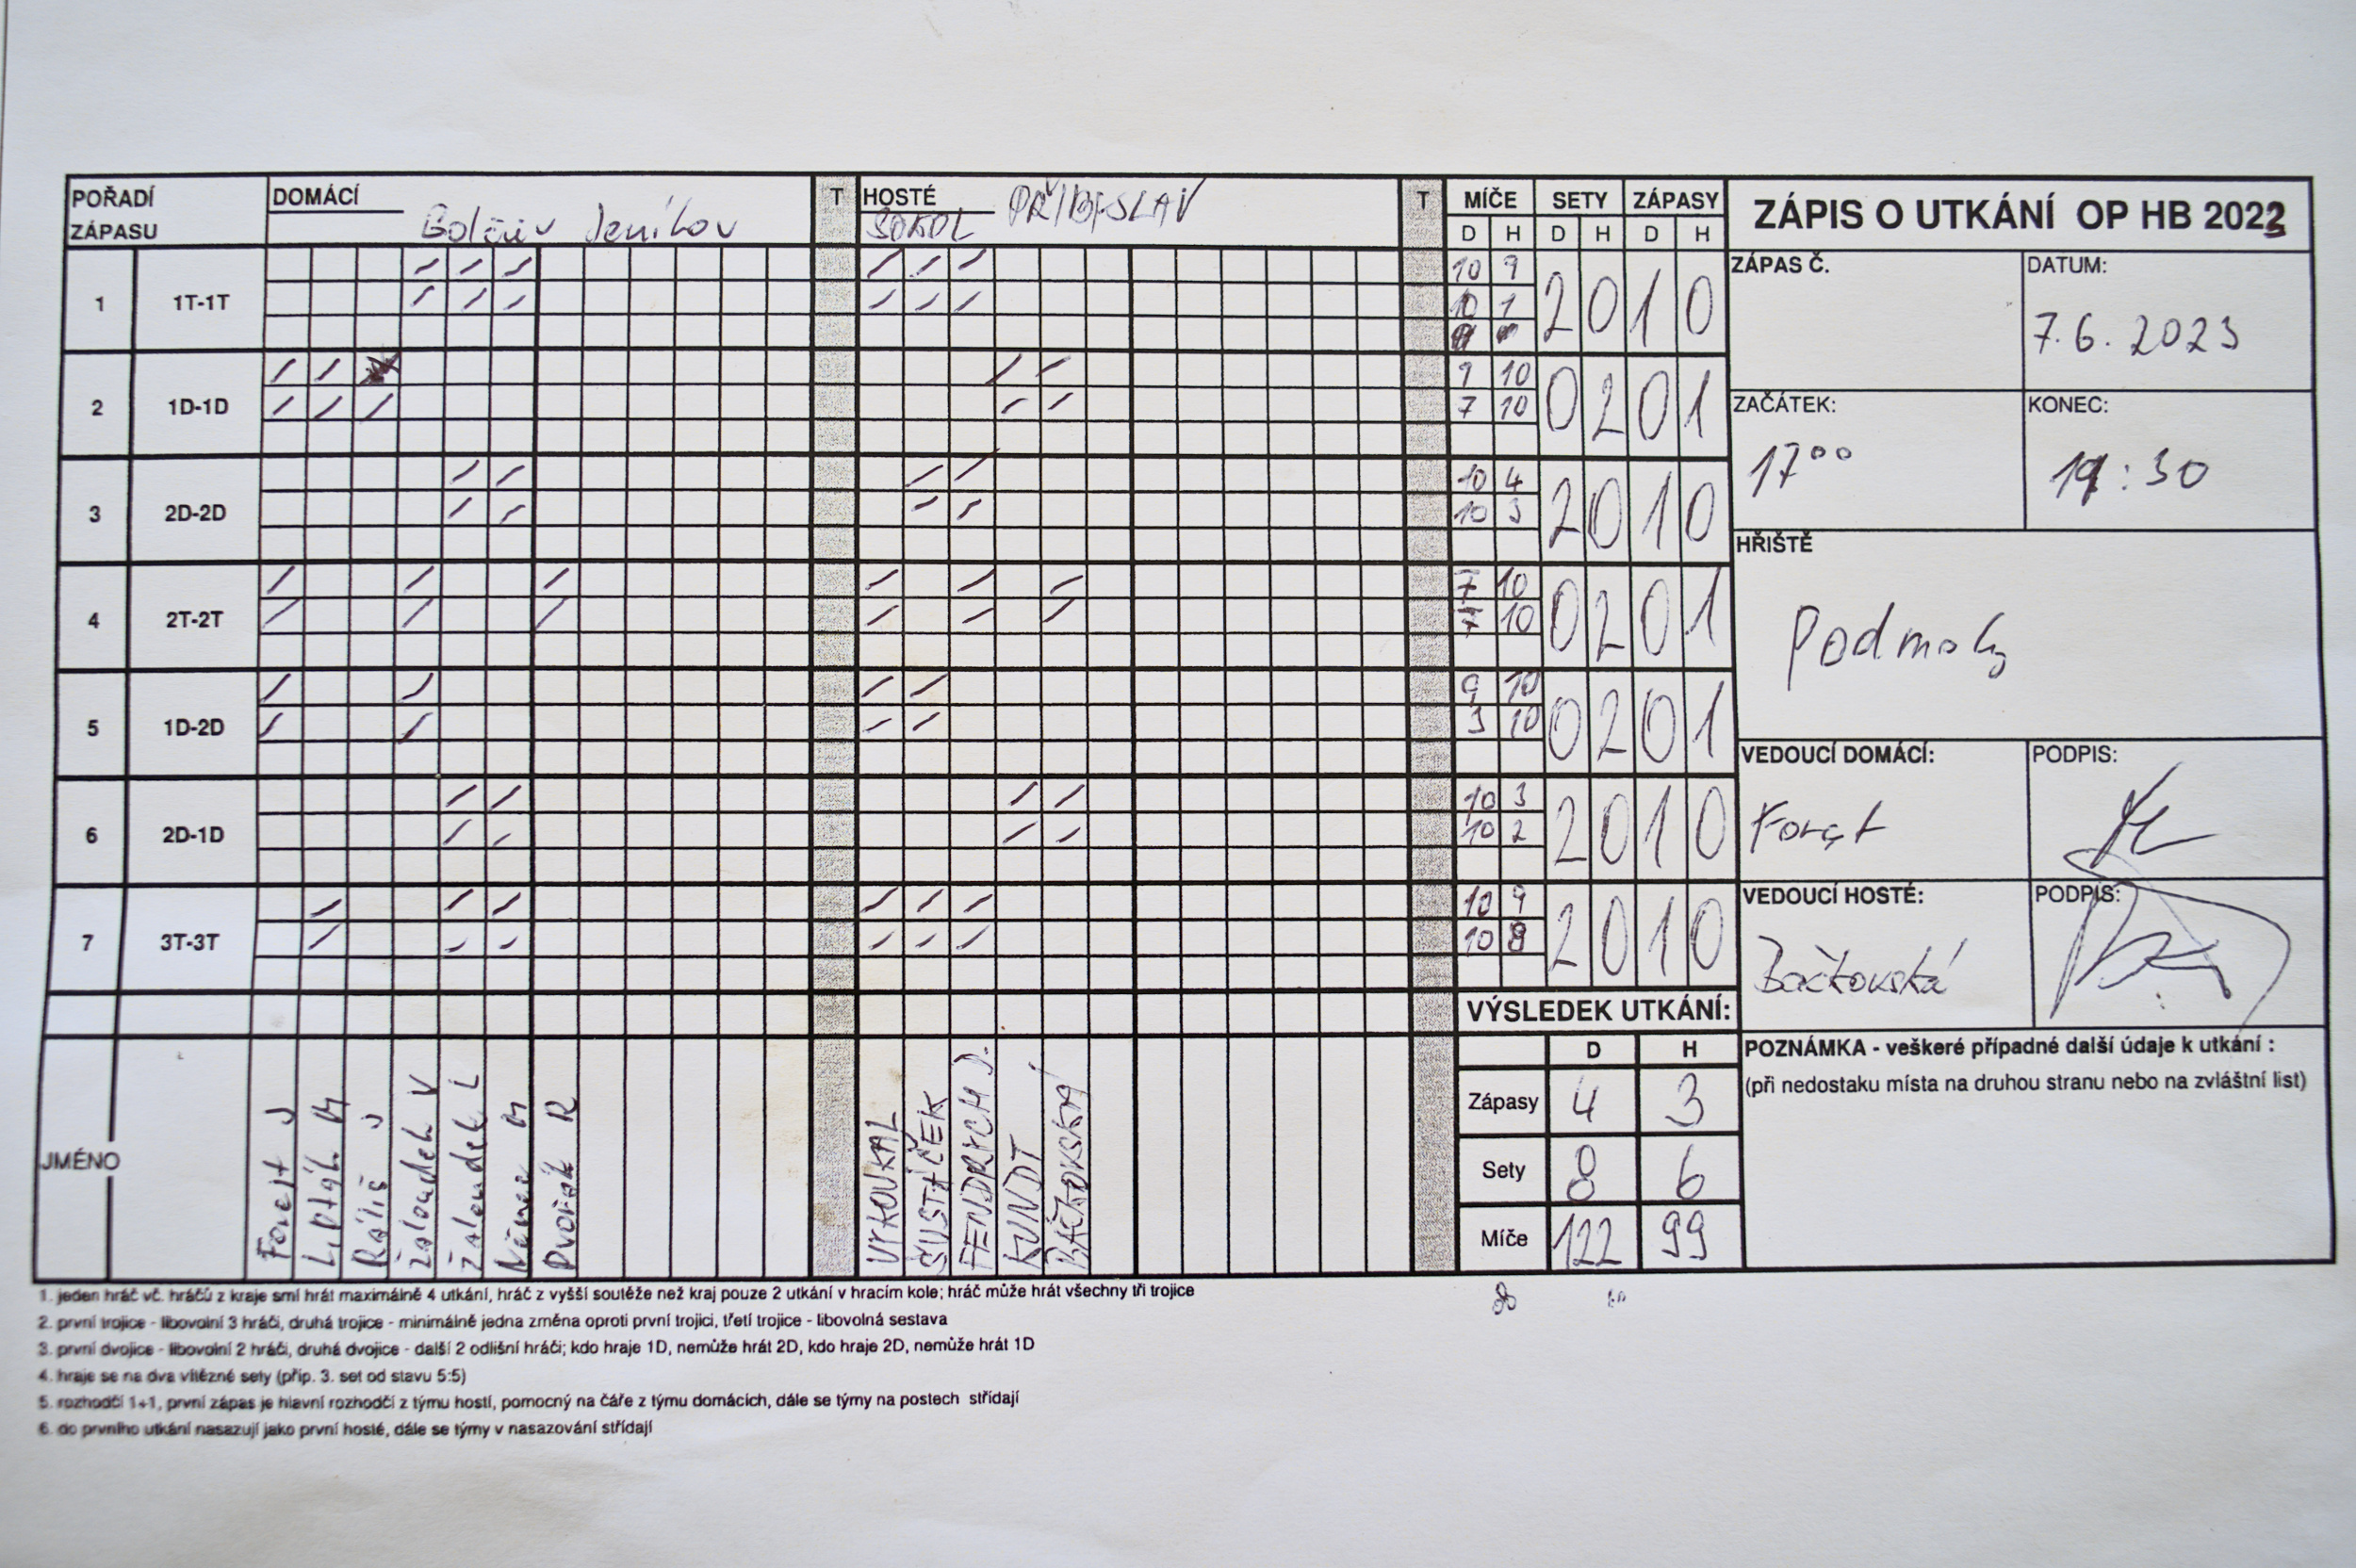 POŘADÍ ZÁPASU DOMÁCÍ Golčův Jeníkov T HOSTÉ SOKOL PŘIBYSLAV T MÍČE SETY ZÁPASY ZÁPIS O UTKÁNÍ OP HB 2023
D H D H D H
1 1T-1T 10 9 2 0 1 0
10 1
ZÁPAS Č. DATUM:
7.6.2023
2 1D-1D 9 10 0 2 0 1
7 10
ZAČÁTEK: KONEC:
17⁰⁰ 19:30
3 2D-2D 10 4 2 0 1 0
10 3
HŘIŠTĚ
Podmoky
4 2T-2T 7 10 0 2 0 1
7 10
5 1D-2D 9 10 0 2 0 1
3 10
VEDOUCÍ DOMÁCÍ: PODPIS:
Forejt
6 2D-1D 10 3 2 0 1 0
10 2
VEDOUCÍ HOSTÉ: PODPIS:
Bačkovská
7 3T-3T 10 9 2 0 1 0
10 8
VÝSLEDEK UTKÁNÍ:
D H
Zápasy 4 3
Sety 8 6
Míče 122 99
POZNÁMKA - veškeré případné další údaje k utkání :
(při nedostaku místa na druhou stranu nebo na zvláštní list)
JMÉNO
Forejt J
Lipták M
Ráliš J
Žaloudek V
Žaloudek L
Němec M
Dvořák R
FENDRYCH J.
KUNDT
BAČKOVSKÁ
1. jeden hráč vč. hráčů z kraje smí hrát maximálně 4 utkání, hráč z vyšší soutěže než kraj pouze 2 utkání v hracím kole; hráč může hrát všechny tři trojice
2. první trojice - libovolní 3 hráči, druhá trojice - minimálně jedna změna oproti první trojici, třetí trojice - libovolná sestava
3. první dvojice - libovolní 2 hráči, druhá dvojice - další 2 odlišní hráči; kdo hraje 1D, nemůže hrát 2D, kdo hraje 2D, nemůže hrát 1D
4. hraje se na dva vítězné sety (příp. 3. set od stavu 5:5)
5. rozhodčí 1+1, první zápas je hlavní rozhodčí z týmu hostí, pomocný na čáře z týmu domácích, dále se týmy na postech střídají
6. do prvního utkání nasazují jako první hosté, dále se týmy v nasazování střídají